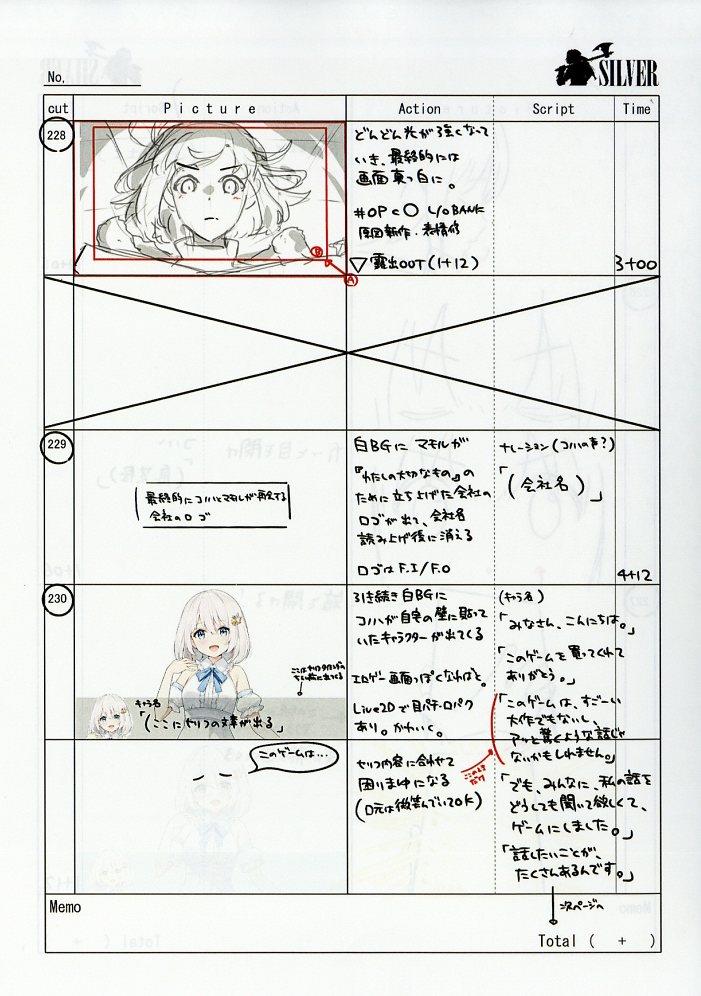 No.
SILVER
cut
Picture
Action
Script
Time
228
どんどん光が強くなって
いき、最終的には
画面真っ白に。
#OPC〇 L/OBANK
原図新作・表情修
▽露出OUT(1+12)
B
A
3+00
229
最終的にコノハとマモルが再会する
会社のロゴ
白BGに マモルが
『わたしの大切なもの』の
ために立ち上げた会社の
ロゴが出て、会社名
読み上げ後に消える
ロゴはF.I/F.O
ナレーション(コノハの声?)
「(会社名)」
4+12
230
キャラ名
「(ここにセリフの文章が出る」
引き続き白BGに
コノハが自宅の壁に貼って
いたキャラクターが出てくる
エロゲー画面っぽくなればと。
Live2Dで目パチ・口パク
あり。かわいく。
(キャラ名)
「みなさん、こんにちは。」
「このゲームを買ってくれて
ありがとう。」
「このゲームは、すごーい
大作でもないし、
アッと驚くような話じゃ
ないかもしれません。」
このゲームは…
セリフ内容に合わせて
困りまゆになる
(口元は微笑んでいてOK)
ここのとき
だけ
「でも、みんなに、私の話を
どうしても聞いて欲しくて、
ゲームにしました。」
「話したいことが、
たくさんあるんです。」
次ページへ
Memo
Total ( + )